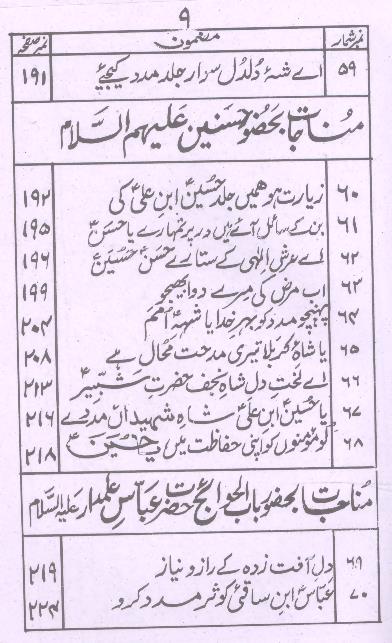 ۹
نمبر شمار مضمون نمبر صفحہ
۵۹ اے شۂ دُلدُل سوار جلد مدد کیجئے ۱۹۱
مُناجات بحضور حسنین علیہم السّلام
۶۰ زیارت ہو ہمیں جلد حُسینؑ ابنِ علیؑ کی ۱۹۲
۶۱ بن کے سائل آئے ہیں در پر تمہارے یا حسنؑ ۱۹۵
۶۲ اے عرشِ الٰہی کے ستارے حسنؑ حُسینؑ ۱۹۶
۶۳ اب مرض کی مرے دوا بھیجو ۱۹۹
۶۴ پہنچو مدد کو بہرِ خدا یا شہہِ اُممؑ ۲۰۴
۶۵ یا شاہِ کربلا تیری مدحت محال ہے ۲۰۸
۶۶ اے لختِ دل شاہِ نجف حضرت شبّیرؑ ۲۱۳
۶۷ یا حُسینؑ ابنِ علیؑ شاہِ شہیداں مددے ۲۱۶
۶۸ لو مومنوں کو اپنی حفاظت میں یا حُسینؑ ۲۱۸
مُناجات بحضور باب الحوائج حضرت عباسؑ علمدار علیہ السّلام
۶۹ دلِ آفت زدہ کے راز و نیاز ۲۱۹
۷۰ عباسؑ ابنِ ساقیٔ کوثر مدد کرو ۲۲۴